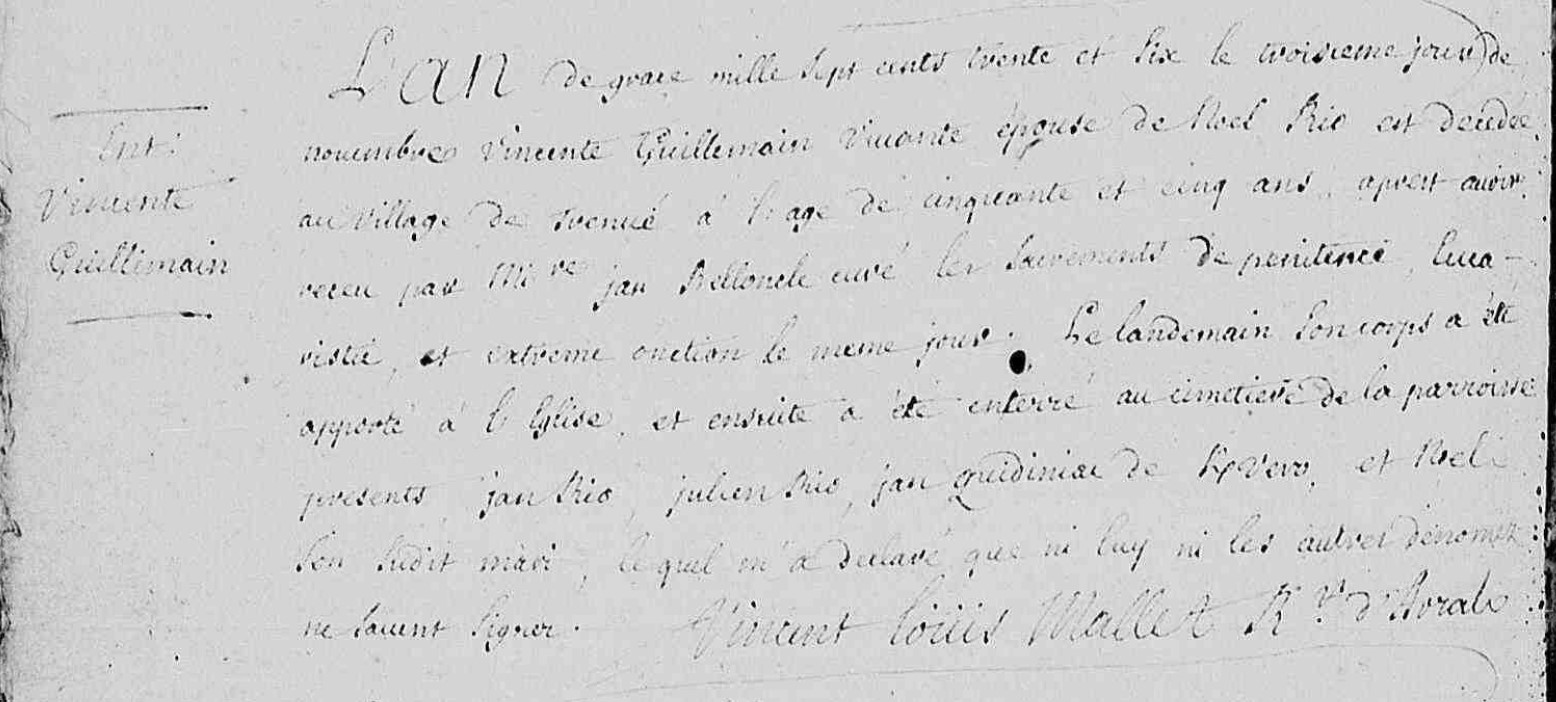 L'an de grace mille sept cents trente et six le troisieme jour de
Ent:
nouembre Vincente Guillemain viuante épouse de Noel Rio est decedée
Vincente
au village de trenué à l'age de cinquante et cinq ans, aprest auoir
Guillemain
receu par Mi re jan Belloncle curé les sacrements de penitence, euca-
ristie, et extreme onction le meme jour. Le landemain son corps a été
apporté à l'Eglise, et ensuite a été enterré au cimetiere de la parroisse
presents jan Rio, julien Rio, jan Guidiniac de et Noel
son sudit mari, le quel m'a declaré que ni luy ni les autres denomez
ne sauent signer. Vincent Loüis Mallet R r